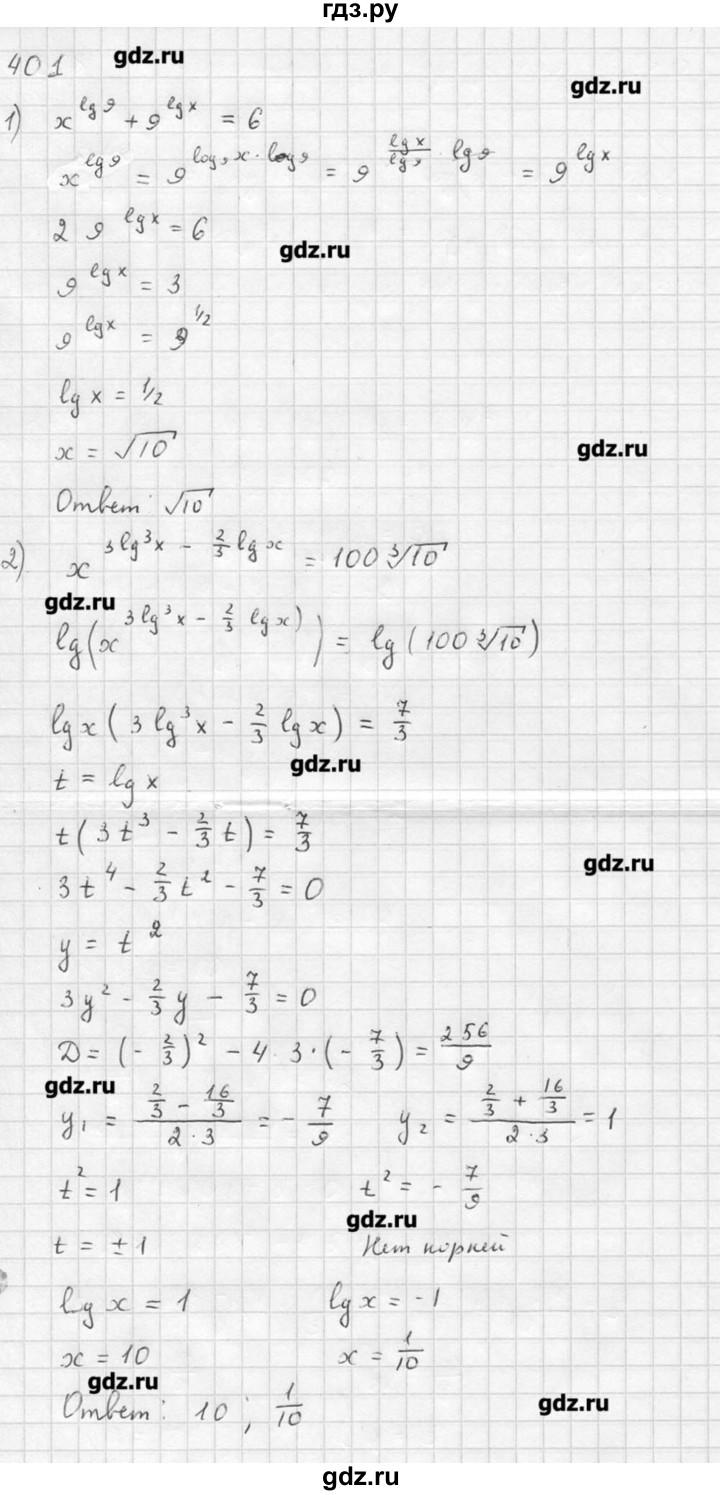 гдз.ру
401
gdz.ru
gdz.ru
1) x^{lg 9} + 9^{lg x} = 6
x^{lg 9} = 9^{log₉ x · log 9} = 9^{\frac{lg x}{lg 9} · lg 9} = 9^{lg x}
2 9^{lg x} = 6
gdz.ru
9^{lg x} = 3
9^{lg x} = 9^{1/2}
lg x = 1/2
x = √10
gdz.ru
Ответ: √10
2) x^{3 lg³x - \frac{2}{3} lg x} = 100 ∛10
gdz.ru
lg(x^{3 lg³x - \frac{2}{3} lg x)}) = lg (100 ∛10)
lg x (3 lg³x - \frac{2}{3} lg x) = \frac{7}{3}
gdz.ru
t = lg x
t(3t³ - \frac{2}{3} t) = \frac{7}{3}
gdz.ru
3t⁴ - \frac{2}{3} t² - \frac{7}{3} = 0
y = t²
3y² - \frac{2}{3} y - \frac{7}{3} = 0
D = (- \frac{2}{3})² - 4 · 3 · (- \frac{7}{3}) = \frac{256}{9}
gdz.ru
y₁ = \frac{\frac{2}{3} - \frac{16}{3}}{2·3} = - \frac{7}{9} y₂ = \frac{\frac{2}{3} + \frac{16}{3}}{2·3} = 1
t² = 1 t² = - \frac{7}{9}
gdz.ru
t = ± 1 Нет корней
lg x = 1 lg x = -1
x = 10 x = \frac{1}{10}
gdz.ru
Ответ: 10 ; \frac{1}{10}
gdz.ru
gdz.ru